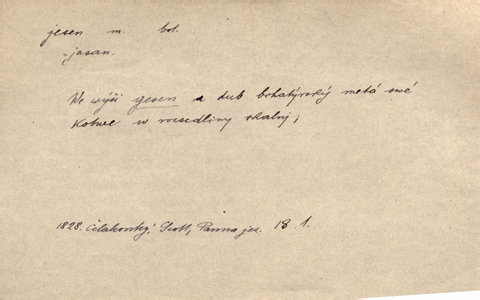 jesen m. bot.
jasan.
We wýši gesen a dub bohatýrský metá swé
kotwe w rozsedliny skalný;
1828. Čelakovský, Scott, Panna jez. 18 1.